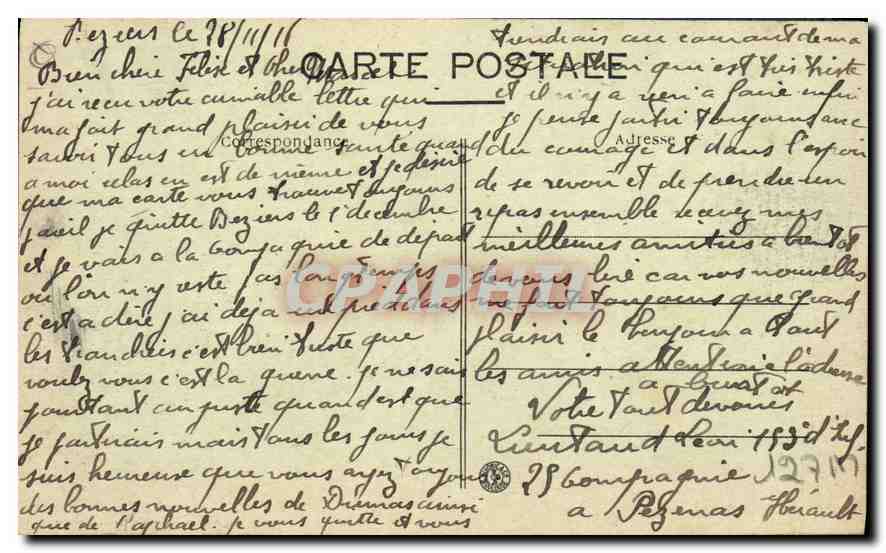 Beziers le 28/11/16
CARTE POSTALE
Correspondance
Adresse
Bien chere Felix et
j'ai recu votre aimable lettre qui
ma fait grand plaisir de vous
savoir tous en bonne santé quand
a moi celas en est de meme et je desire
que ma carte vous trouve toujours
pareil je quitte Beziers le 1 decembre
et je vais a la Compagnie de depart
ou l'on n'y reste pas longtemps
c'est a dire j'ai deja un pied dans
les tranchees c'est bien triste que
voulez vous c'est la guerre. je ne sais
pourtant au juste quand est que
je partirais mais tous les jours je
suis heureuse que vous ayez toujours
des bonnes nouvelles de Dumas ainsi
que de Raphael. je vous quitte et vous
tiendrais au courant de ma
situation qui est tres triste
et il n'y a rien a faire enfin
je pense partir toujours avec
du courage et dans l'espoir
de se revoir et de prendre un
repas ensemble recevez mes
meilleures amitiés a bientot
de vous lire car vos nouvelles
me font toujours que grand
plaisir le bonjour a tout
les amis attention a l'adresse
a bientot
Votre tout devoués
Lieutaud Leon 153e d'Inf.
29 Compagnie
a Pezenas Hérault
12717
CPARHTI